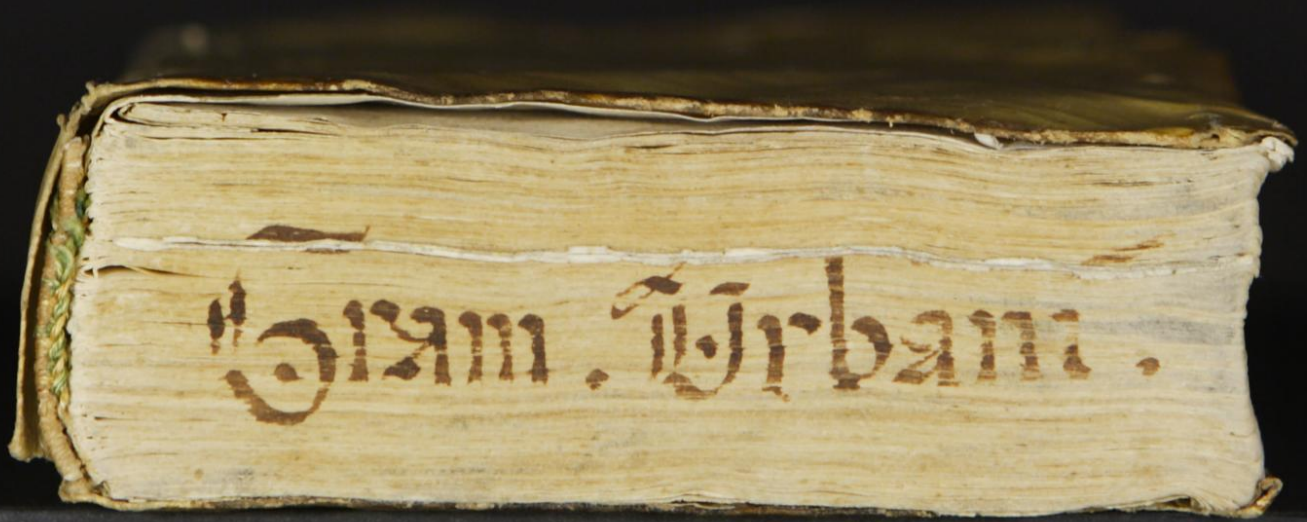 Gram. Urbani.